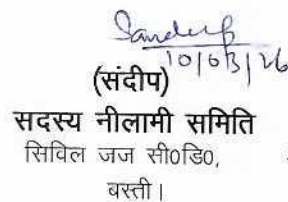 Sandeep
10/03/26
(संदीप)
सदस्य नीलामी समिति
सिविल जज सी०डि०,
बस्ती।